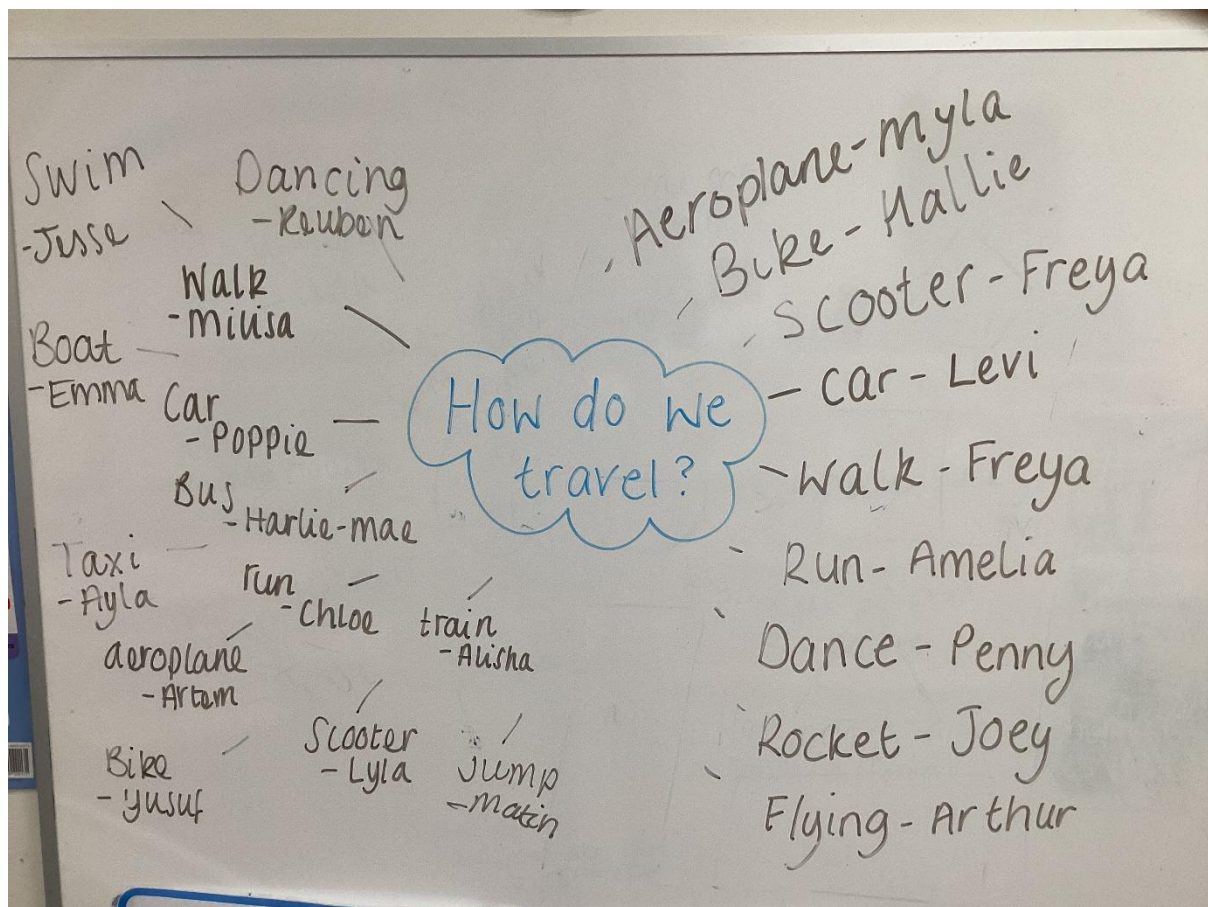 How do we
travel?
Swim
-Jesse
Dancing
-Reuben
Walk
-Milisa
Boat
-Emma
Car
-Poppie
Bus
-Harlie-mae
Taxi
-Ayla
run
-Chloe
train
-Alisha
aeroplane
-Artem
Scooter
-Lyla
Jump
-Matin
Bike
-Yusuf
Aeroplane-Myla
Bike-Hallie
Scooter-Freya
Car-Levi
Walk-Freya
Run-Amelia
Dance-Penny
Rocket-Joey
Flying-Arthur